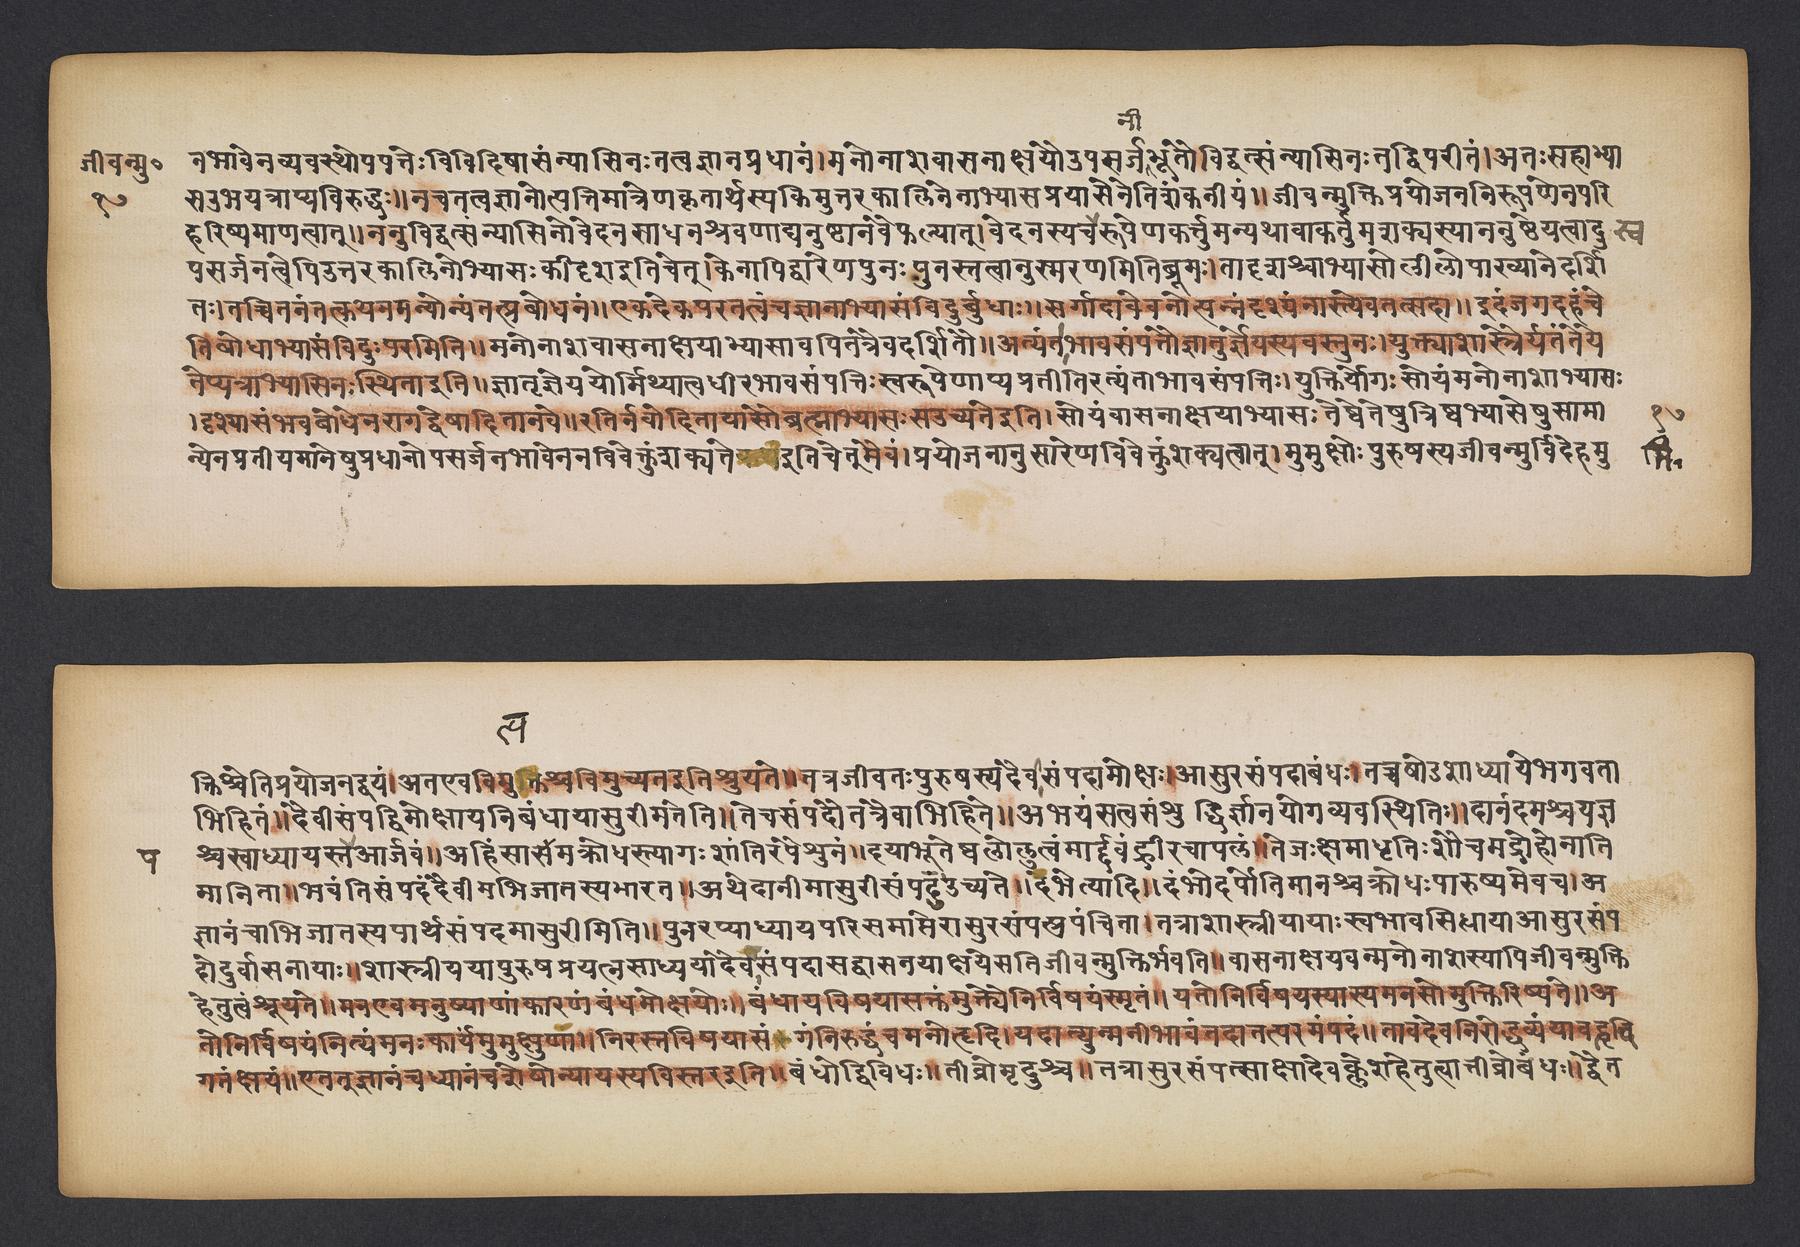 नी
जीवन्मु॰ नभावेनव्यवस्थोपपत्तेः विविदिषासंन्यासिनः तत्वज्ञानप्रधानं। मनोनाशवासनाक्षयौउपसर्जभूतौ। विद्वत्संन्यासिनः तद्विपरीतं। अतः सहाभ्या
१७ सउभयत्राप्यविरुद्धः॥ नचतत्वज्ञानोत्पत्तिमात्रेणकृतार्थस्यकिमुत्तरकालिनेनाभ्यासप्रयासेनेतिशंकनीयं॥ जीवन्मुक्तिप्रयोजननिरूपणेनपरि
हरिष्यमाणत्वात्॥ ननुविद्वत्संन्यासिनोवेदनसाधनश्रवणाद्यनुष्टानवैफल्यात्। वेदनस्यचरूपेणकर्त्तुमन्यथावाकर्त्तुमशक्यस्याननुष्ठेयत्वादु स्व
पसर्जनत्वेपिउत्तरकालिनोभ्यासः कीदृशइतिचेत्। केनापिद्वारेणपुनः पुनस्तत्वानुस्मरणमितिब्रूमः। तादृशश्चाभ्यासोलीलोपाख्यानेदर्शि
तः। तच्चिंतनंतत्कथनमन्योन्यंतत्प्रबोधनं॥ एकदेकपरतत्वंचज्ञानाभ्यासंविदुर्बुधाः॥ सर्गादावेवनोत्पन्नंदृश्यंनास्त्येवतत्सदा॥ इदंजगदहंचे
तिबोधाभ्यासंविदुःपरमिति॥ मनोनाशवासनाक्षयाभ्यासावपितत्रैवदर्शितौ॥ अत्यंतभावसंपत्तौज्ञातुर्ज्ञेयस्यवस्तुनः। युक्त्याशास्त्रैर्यतंतेये
तेप्यत्राभ्यासिनःस्थिताइति॥ ज्ञातृज्ञेययोर्मिथ्यात्वधीरभावसंपत्तिः स्वरूपेणाप्यप्रतीतिरत्यंताभावसंपत्तिः। युक्तिर्योगः सोयंमनोनाशाभ्यासः
। दृश्यासंभवबोधेनरागद्वेषादितानवे॥ रतिर्नवोदितायासौब्रह्माभ्यासः सउच्यतेइति। सोयंवासनाक्षयाभ्यासः तेष्वेतेषुत्रिष्वभ्यासेषुसामा १७
न्येनप्रतीयमानेषुप्रधानोपसर्जनभावेननविवेक्तुंशक्यते इतिचेत्मैवं। प्रयोजनानुसारेणविवेक्तुंशक्यत्वात्। मुमुक्षोः पुरुषस्यजीवन्मुर्विदेहमु
त्य
क्तिश्चेतिप्रयोजनद्वयं। अतएवविमुक्तश्चविमुच्यतइतिश्रुयते॥ तत्रजीवतः पुरुषस्यदैवसंपदामोक्षः। आसुरसंपदाबंधः। तच्चषोडशाध्यायेभगवता
भिहितं॥ दैवीसंपद्विमोक्षायनिबंधायासुरीमतेति॥ तेचसंपदौतत्रैवाभिहिते॥ अभयंसत्वसंशु द्धिर्ज्ञानयोगव्यवस्थितिः॥ दानंदमश्चयज्ञ
प श्चस्वाध्यायस्तआर्जवं॥ अहिंसासत्यमक्रोधस्त्यागः शांतिरपैशुनं॥ दयाभूतेष्वलोलुत्वंमार्द्दवंह्रीरचापलं॥ तेजःक्षमाधृतिःशौचमद्रोहोनाति
मानिता॥ भवंतिसंपदंदैवीमभिजातस्यभारत॥ अथेदानीमासुरीसंपदुउच्यते॥ दंभेत्यादि॥ दंभोदर्पोतिमानश्चक्रोधःपारुष्यमेवच। अ
ज्ञानंचाभिजातस्यपार्थसंपदमासुरीमिति॥ पुनरप्याध्यायपरिसमाप्तेरासुरसंपत्प्रपंचिता। तत्राशास्त्रीयायाः स्वभावसिद्धायाआसुरसंप
दोदुर्वासनायाः॥ शास्त्रीययापुरुषप्रयत्नसाध्ययादैवसंपदासद्वासनयाक्षयेसतिजीवन्मुक्तिर्भवति॥ वासनाक्षयवन्मनोनाशस्यापिजीवन्मुक्ति
हेतुत्वंश्रूयते॥ मनएवमनुष्याणांकारणंबंधमोक्षयोः॥ बंधायविषयासक्तंमुक्त्यैनिर्विषयंस्मृतं॥ यतोनिर्विषयस्यास्यमनसोमुक्तिरिष्यते॥ अ
तोनिर्विषयंनित्यंमनःकार्यंमुमुक्षुणा॥ निरस्तविषयासं गंनिरुद्धंचमनोहृदि। यदात्युन्मनीभावंतदातत्परमंपदं॥ तावदेवनिरोद्धव्यंयावद्धृदि
गतंक्षयं॥ एतत्ज्ञानंचध्यानंचशेषोन्यायस्यविस्तरइति॥ बंधोद्विविधः॥ तीव्रोमृदुश्च॥ तत्रासुरसंपत्साक्षादेवक्लेशहेतुत्वात्तीव्रोबंधः॥ द्वैत